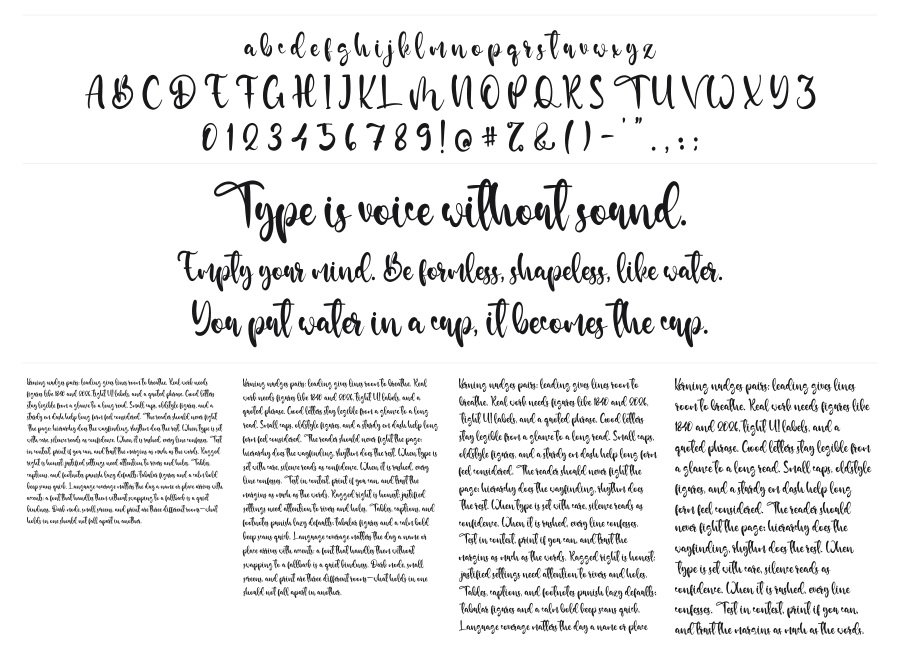 abcdefghijklmnopqrstuvwxyz
ABCDEFGHIJKLMNOPQRSTUVWXYZ
0123456789!@#%&()-'".,:;
Type is voice without sound.
Empty your mind. Be formless, shapeless, like water.
You put water in a cup, it becomes the cup.
Kerning nudges pairs; leading gives lines room to breathe. Real work needs
figures like 1840 and 2026, tight UI labels, and a quoted phrase. Good letters
stay legible from a glance to a long read. Small caps, oldstyle figures, and a
sturdy en dash help long form feel considered. The reader should never fight
the page; hierarchy does the wayfinding, rhythm does the rest. When type is set
with care, silence reads as confidence. When it is rushed, every line confesses. Test
in context, print if you can, and trust the margins as much as the words. Ragged
right is honest; justified settings need attention to rivers and holes. Tables,
captions, and footnotes punish lazy defaults. Tabular figures and a calm bold
keep scans quick. Language coverage matters the day a name or place arrives with
accents; a font that handles them without swapping to a fallback is a quiet
kindness. Dark mode, small screens, and print are three different rooms—what
holds in one should not fall apart in another.
Kerning nudges pairs; leading gives lines room to breathe. Real
work needs figures like 1840 and 2026, tight UI labels, and a
quoted phrase. Good letters stay legible from a glance to a long
read. Small caps, oldstyle figures, and a sturdy en dash help long
form feel considered. The reader should never fight the page;
hierarchy does the wayfinding, rhythm does the rest. When type is
set with care, silence reads as confidence. When it is rushed, every
line confesses. Test in context, print if you can, and trust the
margins as much as the words. Ragged right is honest; justified
settings need attention to rivers and holes. Tables, captions, and
footnotes punish lazy defaults. Tabular figures and a calm bold
keep scans quick. Language coverage matters the day a name or
place arrives with accents; a font that handles them without
swapping to a fallback is a quiet kindness. Dark mode, small
screens, and print are three different rooms—what holds in one
should not fall apart in another.
Kerning nudges pairs; leading gives lines room to
breathe. Real work needs figures like 1840 and 2026,
tight UI labels, and a quoted phrase. Good letters
stay legible from a glance to a long read. Small caps,
oldstyle figures, and a sturdy en dash help long form
feel considered. The reader should never fight the
page; hierarchy does the wayfinding, rhythm does
the rest. When type is set with care, silence reads as
confidence. When it is rushed, every line confesses.
Test in context, print if you can, and trust the
margins as much as the words. Ragged right is honest;
justified settings need attention to rivers and holes.
Tables, captions, and footnotes punish lazy defaults.
Tabular figures and a calm bold keep scans quick.
Language coverage matters the day a name or place
Kerning nudges pairs; leading gives lines
room to breathe. Real work needs figures like
1840 and 2026, tight UI labels, and a
quoted phrase. Good letters stay legible from
a glance to a long read. Small caps, oldstyle
figures, and a sturdy en dash help long
form feel considered. The reader should
never fight the page; hierarchy does the
wayfinding, rhythm does the rest. When
type is set with care, silence reads as
confidence. When it is rushed, every line
confesses. Test in context, print if you can,
and trust the margins as much as the words.